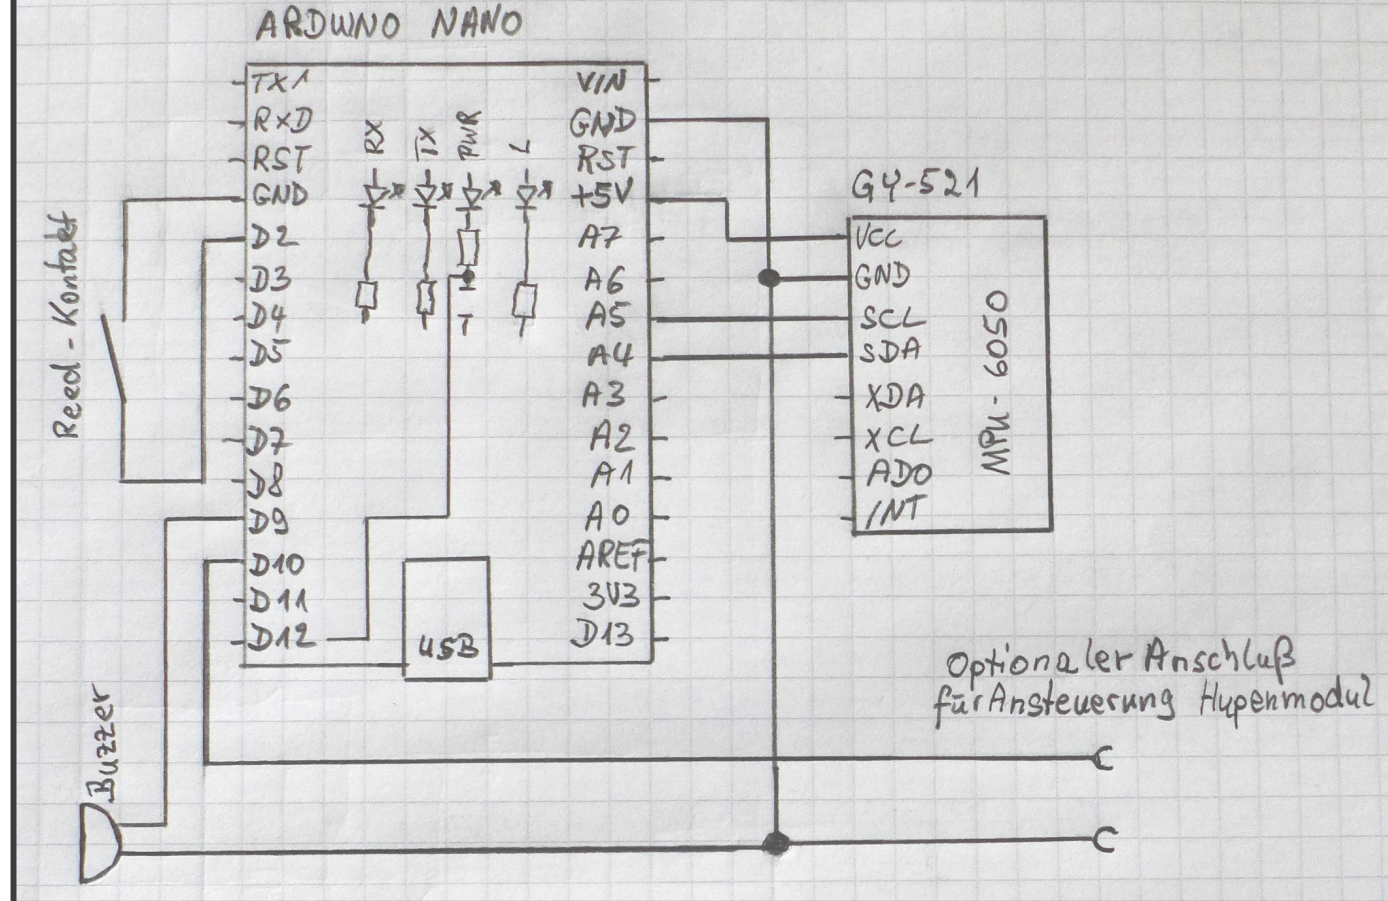 ARDUINO NANO
TX1
RXD
RST
GND
D2
D3
D4
D5
D6
D7
D8
D9
D10
D11
D12
RX
TX
PWR
L
VIN
GND
RST
+5V
A7
A6
A5
A4
A3
A2
A1
A0
AREF
3V3
D13
USB
Reed-Kontakt
Buzzer
GY-521
VCC
GND
SCL
SDA
XDA
XCL
ADO
INT
MPU-6050
Optionaler Anschluß
für Ansteuerung Hupenmodul